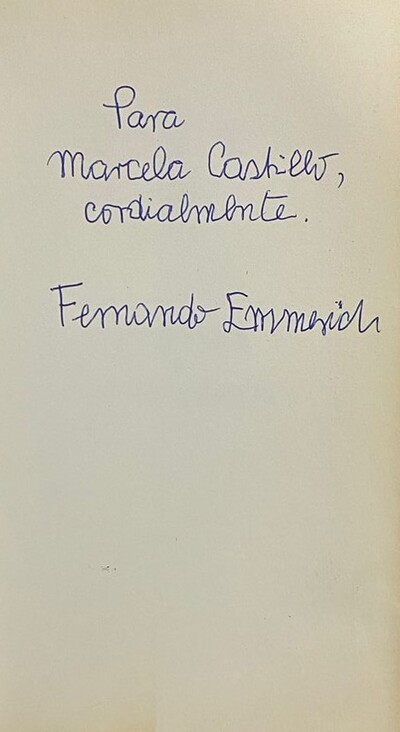 Para
Marcela Castillo,
cordialmente.
Fernando Emmerich